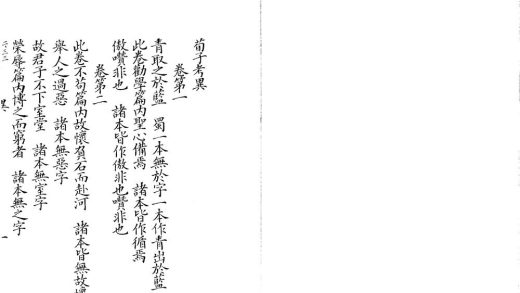 荀子考異
卷第一
青取之於藍 蜀一本無於字一本作青出於藍
此卷勸學篇内聖心備焉 諸本皆作循焉
傲囋非也 諸本皆作傲非也囋非也
卷第二
此卷不苟篇内故懷負石而赴河 諸本皆無故懷
舉人之過惡 諸本無惡字
故君子不下室堂 諸本無室字
榮辱篇内博之而窮者 諸本無之字
一